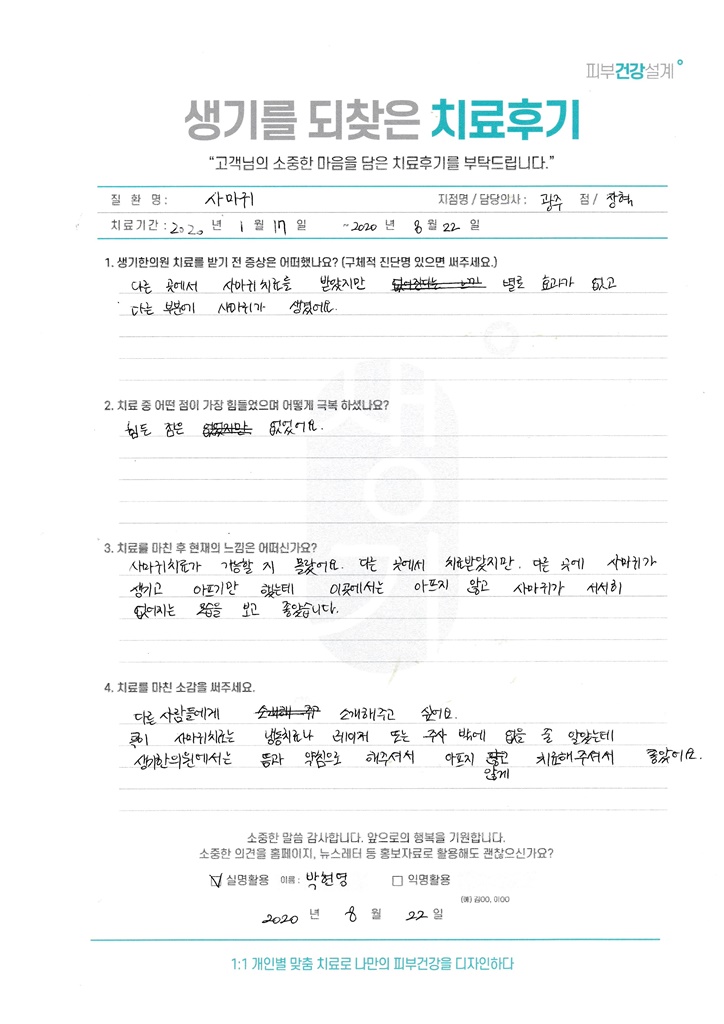 피부건강설계
생기를 되찾은 치료후기
“고객님의 소중한 마음을 담은 치료후기를 부탁드립니다.”
질 환 명 : 사마귀 지점명 / 담당의사 : 광주 점 / 장혁
치료기간 : 2020 년 1 월 17 일 ~2020 년 8 월 22 일
1. 생기한의원 치료를 받기 전 증상은 어떠했나요? (구체적 진단명 있으면 써주세요.)
다른 곳에서 사마귀 치료를 받았지만 별로 효과가 없고
다른 부분에 사마귀가 생겼어요.
2. 치료 중 어떤 점이 가장 힘들었으며 어떻게 극복 하셨나요?
힘든 점은 없었어요.
3. 치료를 마친 후 현재의 느낌은 어떠신가요?
사마귀치료가 가능할 지 몰랐어요. 다른 곳에서 치료받았지만. 다른 곳에 사마귀가
생기고 아프기만 했는데 이곳에서는 아프지 않고 사마귀가 서서히
없어지는 모습을 보고 좋았습니다.
4. 치료를 마친 소감을 써주세요.
다른 사람들에게 소개해주고 싶어요.
특히 사마귀치료는 냉동치료나 레이저 또는 주사 밖에 없을 줄 알았는데
생기한의원에서는 뜸과 약침으로 해주셔서 아프지 않게 치료해주셔서 좋았어요.
소중한 말씀 감사합니다. 앞으로의 행복을 기원합니다.
소중한 의견을 홈페이지, 뉴스레터 등 홍보자료로 활용해도 괜찮으신가요?
실명활용 이름 : 박현영 익명활용
(예) 김00, 이00
2020 년 8 월 22 일
1:1 개인별 맞춤 치료로 나만의 피부건강을 디자인하다